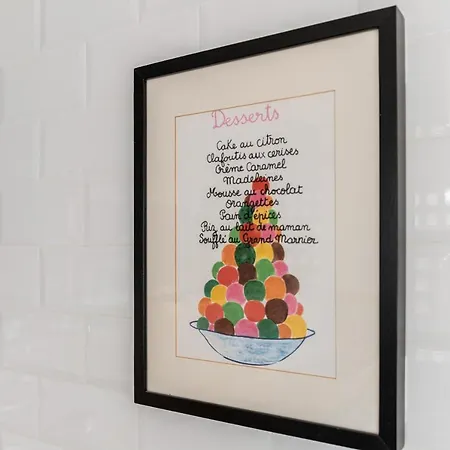 Desserts
Cake au citron
Clafoutis aux cerises
Crème Caramel
Madeleines
Mousse au chocolat
Orangettes
Pain d'épices
Riz au lait de maman
Soufflé au Grand Marnier